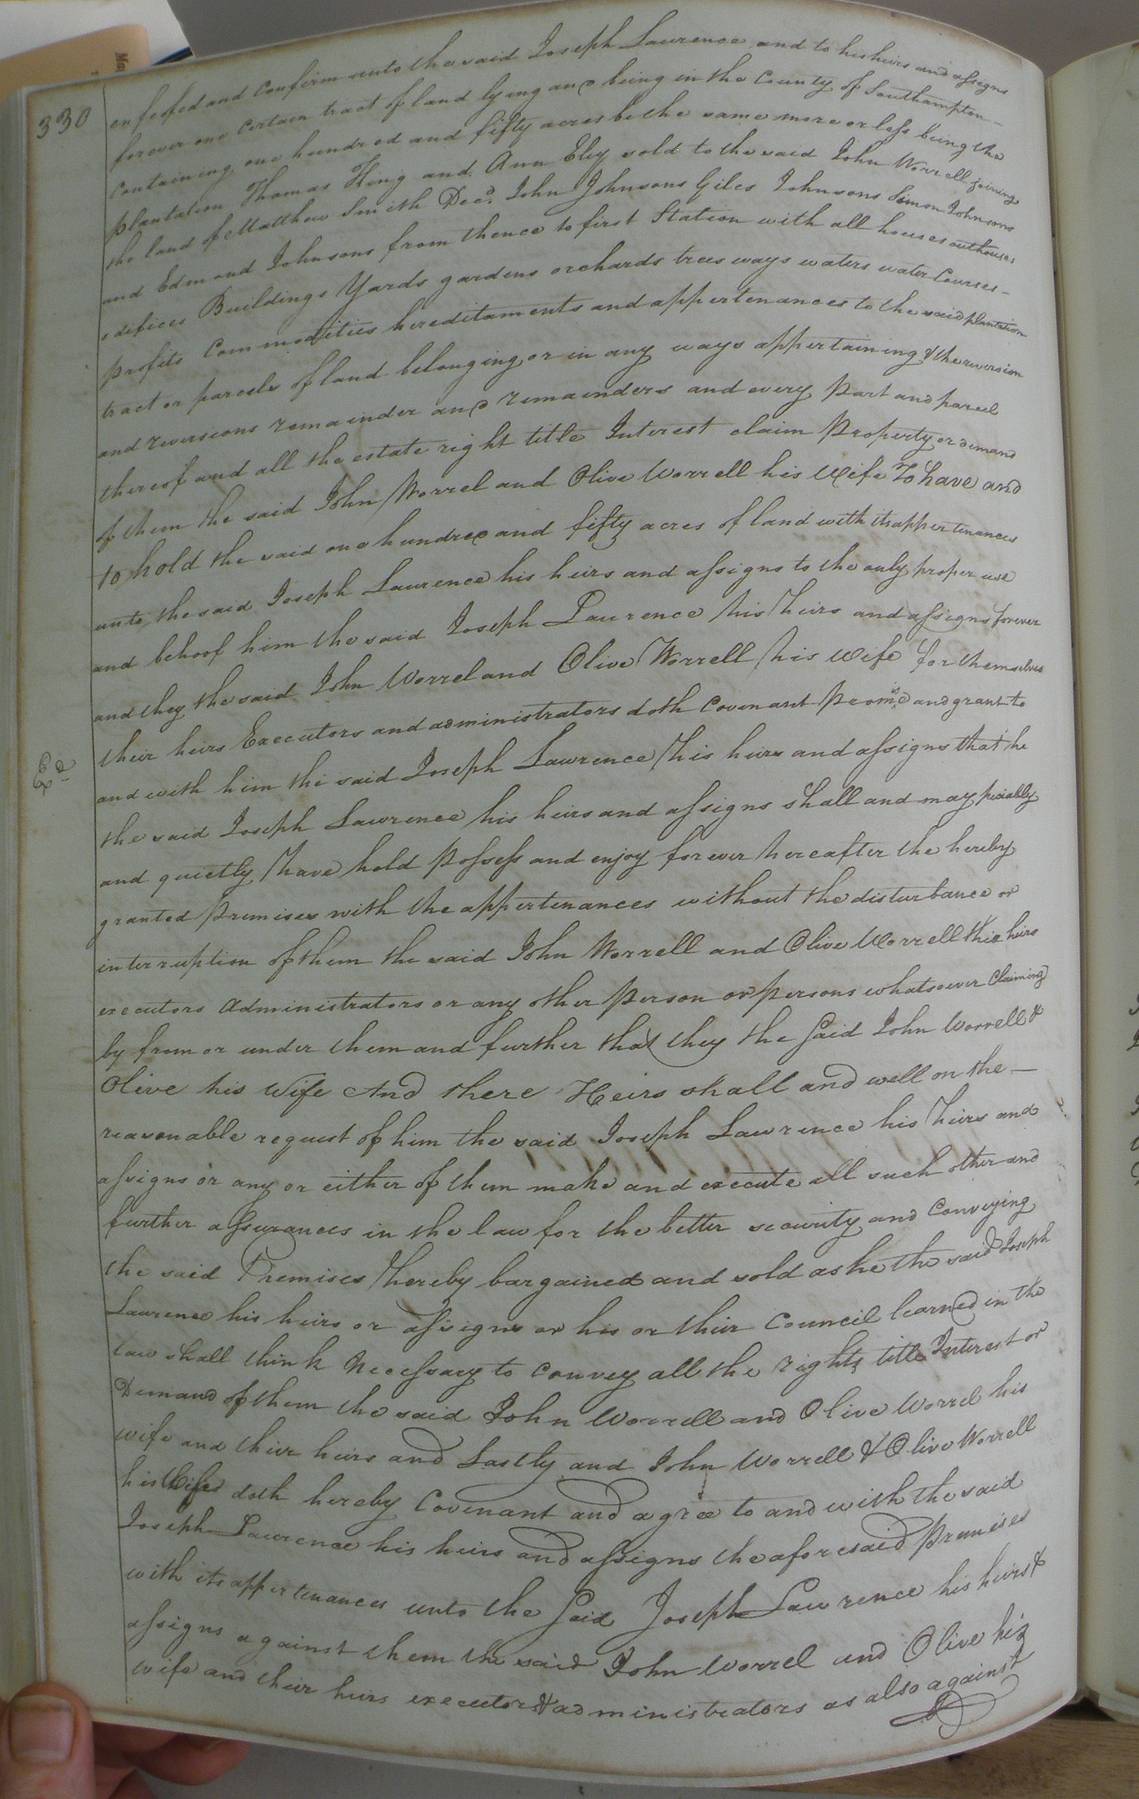 330
enfeofed and confirm unto the said Joseph Lawrence and to his heirs and assigns
forever one certain tract of land lying and being in the County of Southampton
containing one hundred and fifty acres be the same more or less being the
plantation Thomas and Ann Eley sold to the said John Worrell joining
the land of Matthew Smith Decd. John Johnsons Giles Johnsons Simon Johnsons
and Edmond Johnsons from thence to first Station with all houses outhouses
edifices Buildings Yards gardens orchards trees ways waters water Courses
profits Commodities hereditaments and appertenances to the said plantation
tract or parcels of land belonging or in any ways appertaining & the reversion
and reversions remainder and remainders and every Part and parcel
thereof and all the estate right title Interest claim Property or demand
of them the said John Worrel and Olive Worrell his Wife To have and
to hold the said one hundred and fifty acres of land with its appertenances
unto the said Joseph Lawrence his heirs and assigns to the only proper use
and behoof him the said Joseph Lawrence his heirs and assigns forever
and they the said John Worrel and Olive Worrell his Wife for themselves
their heirs Executors and administrators doth Covenant Promise and grant to
Ed
and with him the said Joseph Lawrence his heirs and assigns that he
the said Joseph Lawrence his heirs and assigns shall and may peciably
and quietly have hold Possess and enjoy forever hereafter the hereby
granted Premises with the appertenances without the disturbance or
interruption of them the said John Worrell and Olive Worrell heirs
executors Administrators or any other Person or Persons whatsoever Claiming
by from or under them and further that they the Said John Worrell &
Olive his Wife And there Heirs shall and well on the
reasonable request of him the said Joseph Lawrence his heirs and
assigns or any or either of them make and execute all such other and
further assurances in the law for the better security and Conveying
the said Premises hereby bargained and sold as he the said Joseph
Lawrence his heirs or assigns or his or their Council learned in the
law shall think Necessary to convey all the right title Interest or
Demand of them the said John Worrell and Olive Worrel his
wife and their heirs and Lastly and John Worrell & Olive Worrell
his Wife doth hereby Covenant and agree to and with the said
Joseph Lawrence his heirs and assigns the aforesaid Premises
with its appertenances unto the Said Joseph Lawrence his heirs &
assigns against them the said John Worrel and Olive his
wife and their heirs executors & administrators as also against